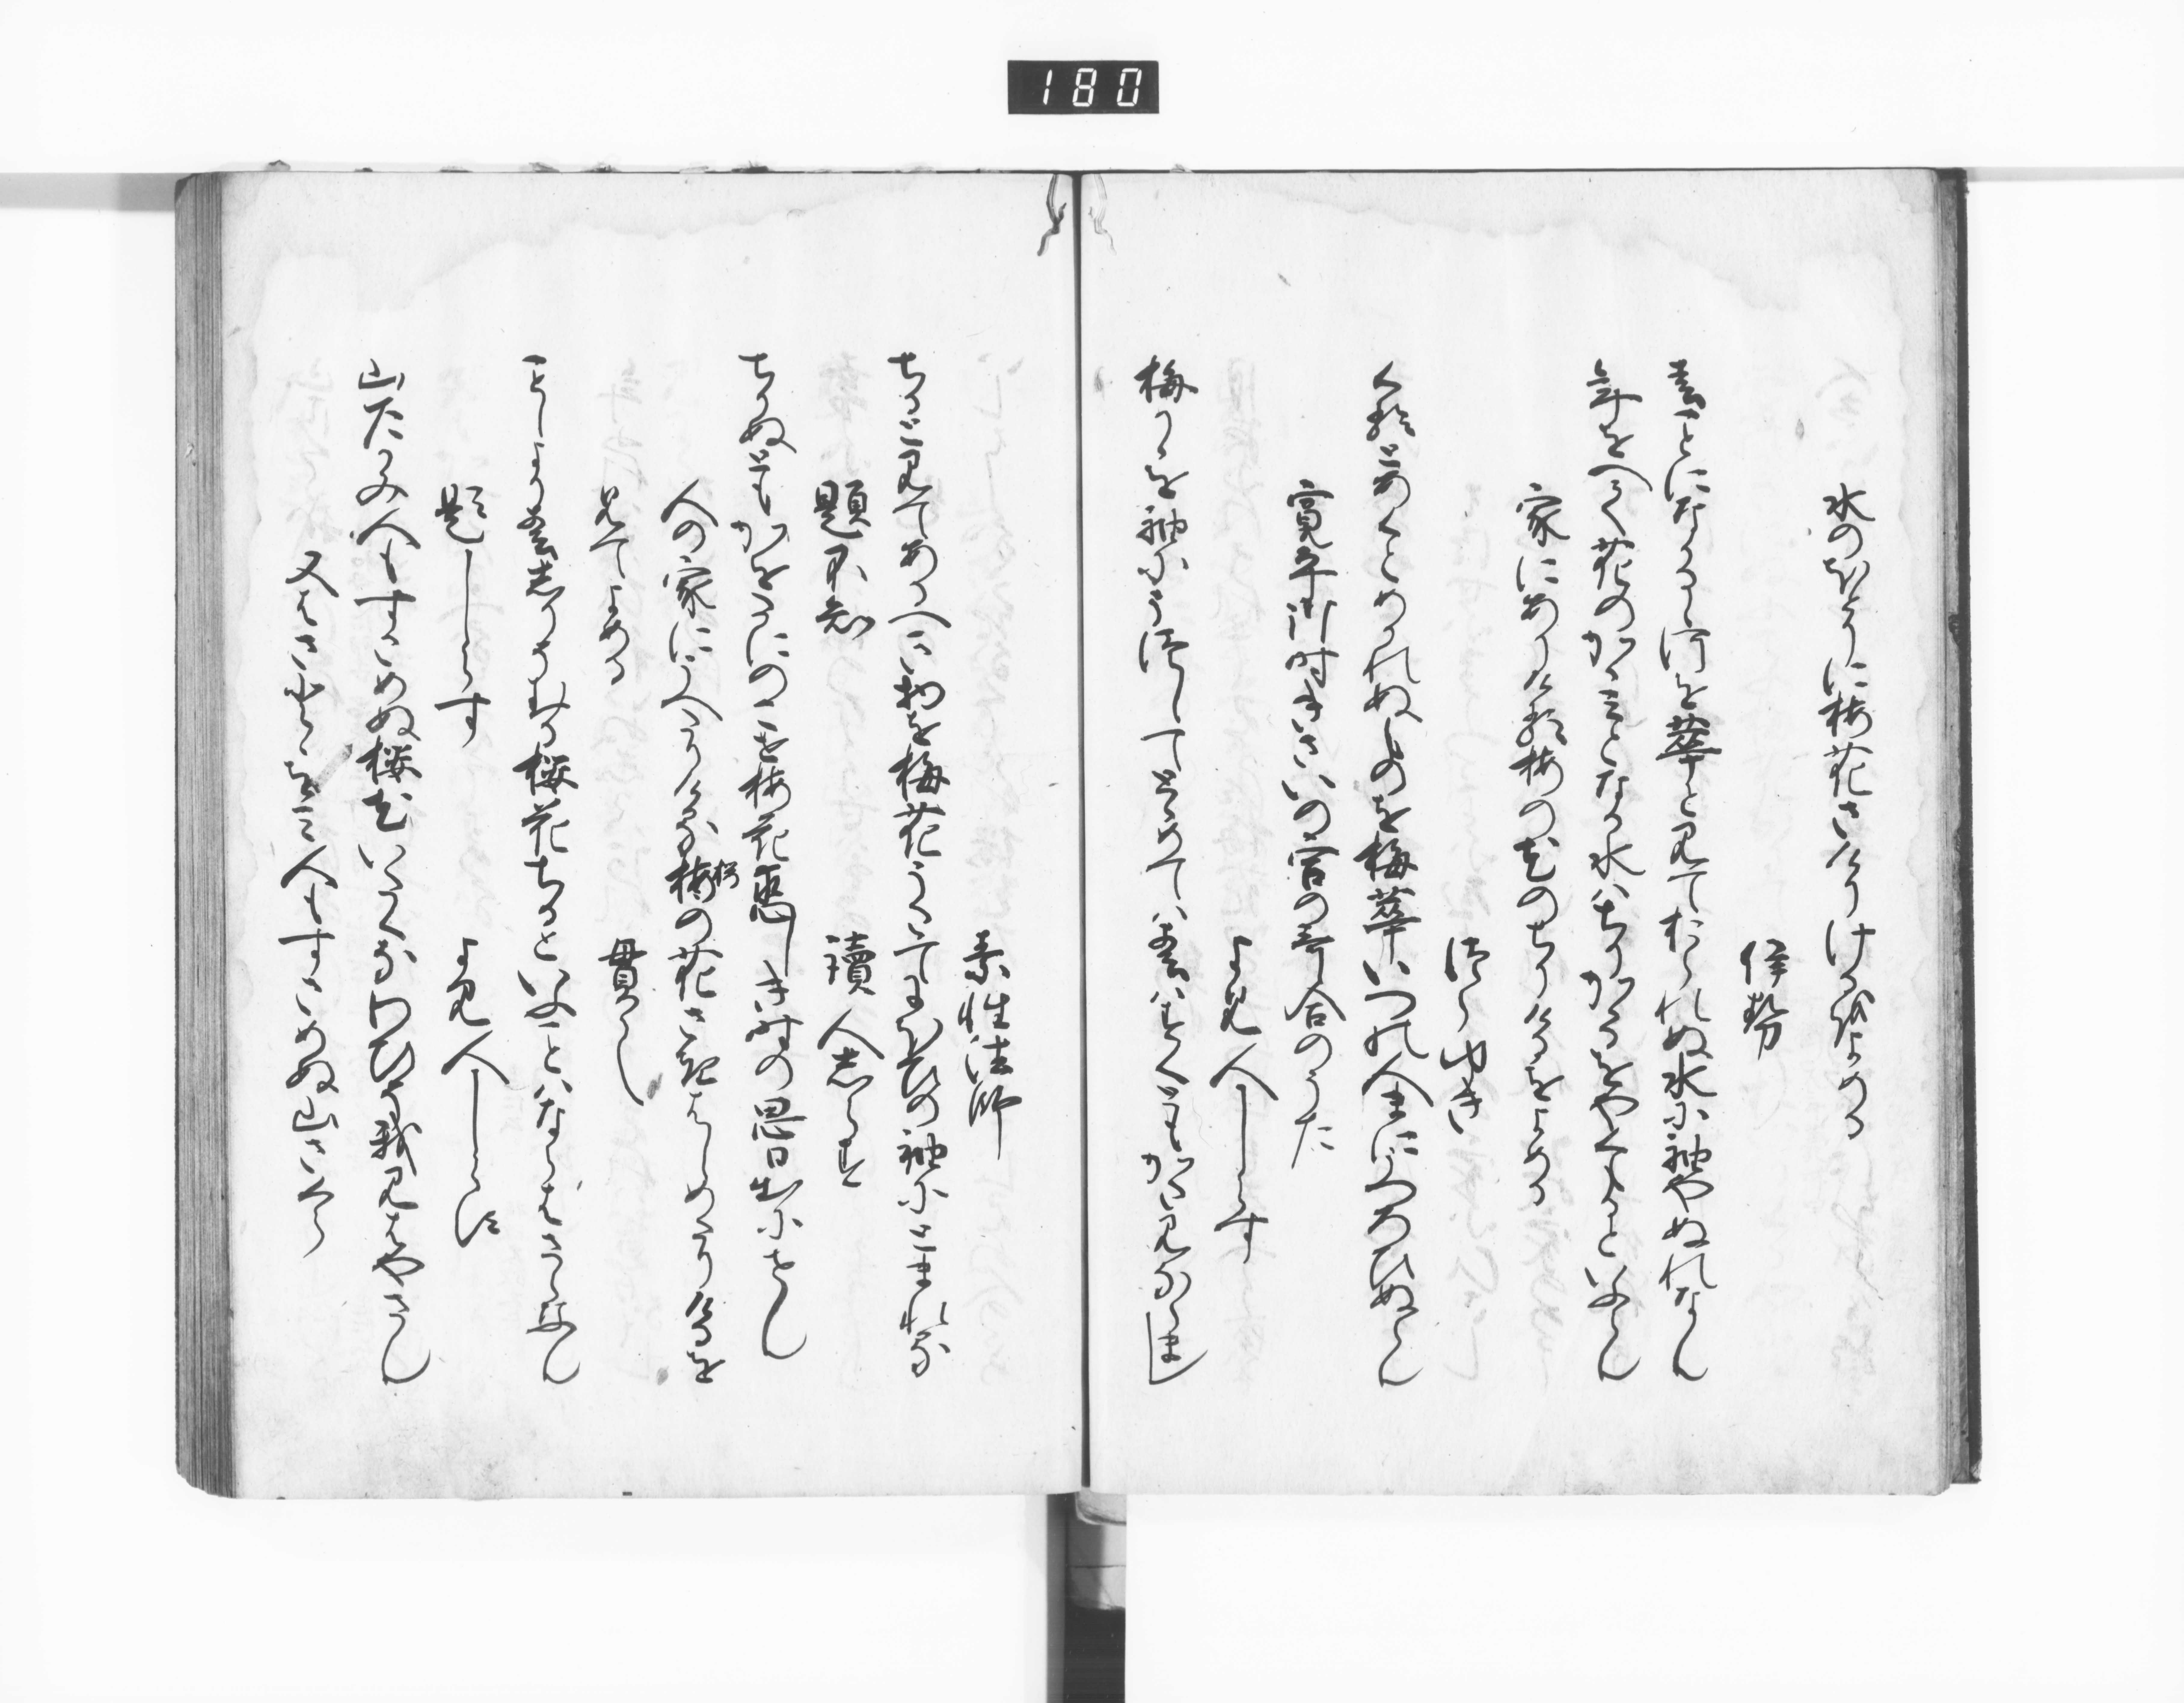 180
水のほとりに梅花さけりけるをよめる
伊勢
春ことになかるゝ河を華と見ておられぬ水に袖やぬれなん
年をへて花のかゝみとなる水はちりかゝるをやくもるといふらん
家にありける梅の花のちりけるをよめる
つらゆき
くるとあくとめかれぬものを梅華いつの人まにうつろひぬらん
寛平御時きさいの宮の哥合のうた
よみ人しらす
梅かゝを袖にうつしてとゝめては春はすくともかたみならまし
素性法師
ちると見てあるへき物を梅花うたてにほひの袖にとまれる
題不知
讀人志らす
ちりぬともかをたにのこせ梅花恋しき時の思日出にせん
人の家にうへたりける梅の花さきはしめたりけるを
桜
見てよめる
貫之
ことしより春志りそむる桜花ちるといふことはならはさらなん
題しらす
よみ人しらす
山たかみ人もすさめぬ桜花いたくなわひそ我見はやさん
又はさととをみ人もすさめぬ山さくら